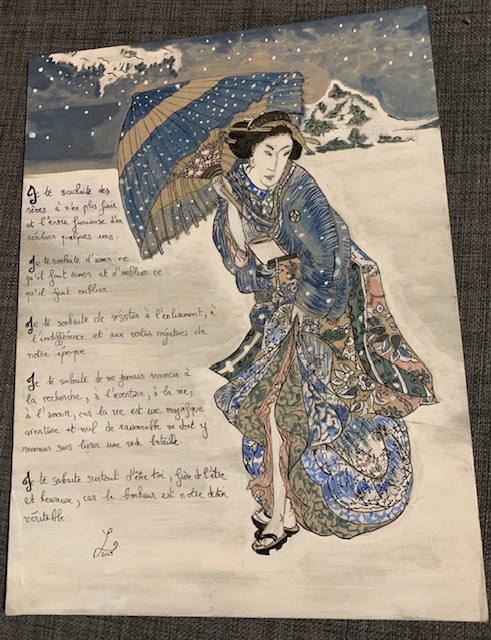 Je te souhaite des
rêves à n'en plus finir
et l'envie furieuse d'en
réaliser quelques uns.
Je te souhaite d'aimer ce
qu'il faut aimer et d'oublier ce
qu'il faut oublier.
Je te souhaite de résister à l'enlisement, à
l'indifférence et aux vertus négatives de
notre époque.
Je te souhaite de ne jamais renoncer à
la recherche, à l'aventure, à la vie,
à l'amour, car la vie est une magnifique
aventure et nul de raisonnable ne doit y
renoncer sans livrer une rude bataille
Je te souhaite surtout d'être toi, fière de l'être
et heureuse, car le bonheur est notre destin
véritable.